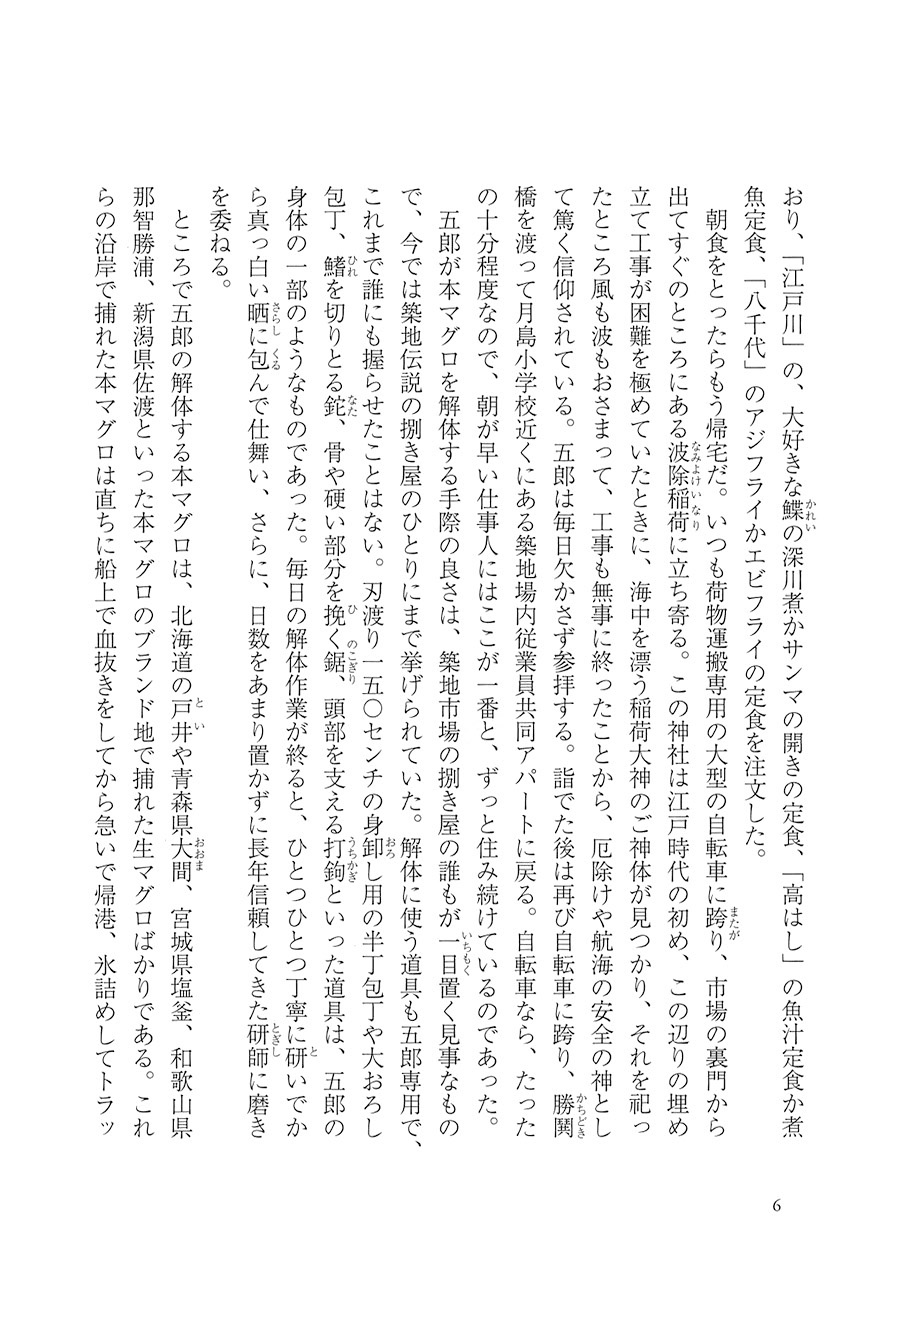 おり、「江戸川」の、大好きな鰈の深川煮かサンマの開きの定食、「高はし」の魚汁定食か煮
魚定食、「八千代」のアジフライかエビフライの定食を注文した。
　朝食をとったらもう帰宅だ。いつも荷物運搬専用の大型の自転車に跨り、市場の裏門から
出てすぐのところにある波除稲荷に立ち寄る。この神社は江戸時代の初め、この辺りの埋め
立て工事が困難を極めていたときに、海中を漂う稲荷大神のご神体が見つかり、それを祀っ
たところ風も波もおさまって、工事も無事に終ったことから、厄除けや航海の安全の神とし
て篤く信仰されている。五郎は毎日欠かさず参拝する。詣でた後は再び自転車に跨り、勝鬨
橋を渡って月島小学校近くにある築地場内従業員共同アパートに戻る。自転車なら、たった
の十分程度なので、朝が早い仕事人にはここが一番と、ずっと住み続けているのであった。
　五郎が本マグロを解体する手際の良さは、築地市場の捌き屋の誰もが一目置く見事なもの
で、今では築地伝説の捌き屋のひとりにまで挙げられていた。解体に使う道具も五郎専用で、
これまで誰にも握らせたことはない。刃渡り一五〇センチの身卸し用の半丁包丁や大おろし
包丁、鰭を切りとる鉈、骨や硬い部分を挽く鋸、頭部を支える打鉤といった道具は、五郎の
身体の一部のようなものであった。毎日の解体作業が終ると、ひとつひとつ丁寧に研いでか
ら真っ白い晒に包んで仕舞い、さらに、日数をあまり置かずに長年信頼してきた研師に磨き
を委ねる。
　ところで五郎の解体する本マグロは、北海道の戸井や青森県大間、宮城県塩釜、和歌山県
那智勝浦、新潟県佐渡といった本マグロのブランド地で捕れた生マグロばかりである。これ
らの沿岸で捕れた本マグロは直ちに船上で血抜きをしてから急いで帰港、氷詰めしてトラッ
6